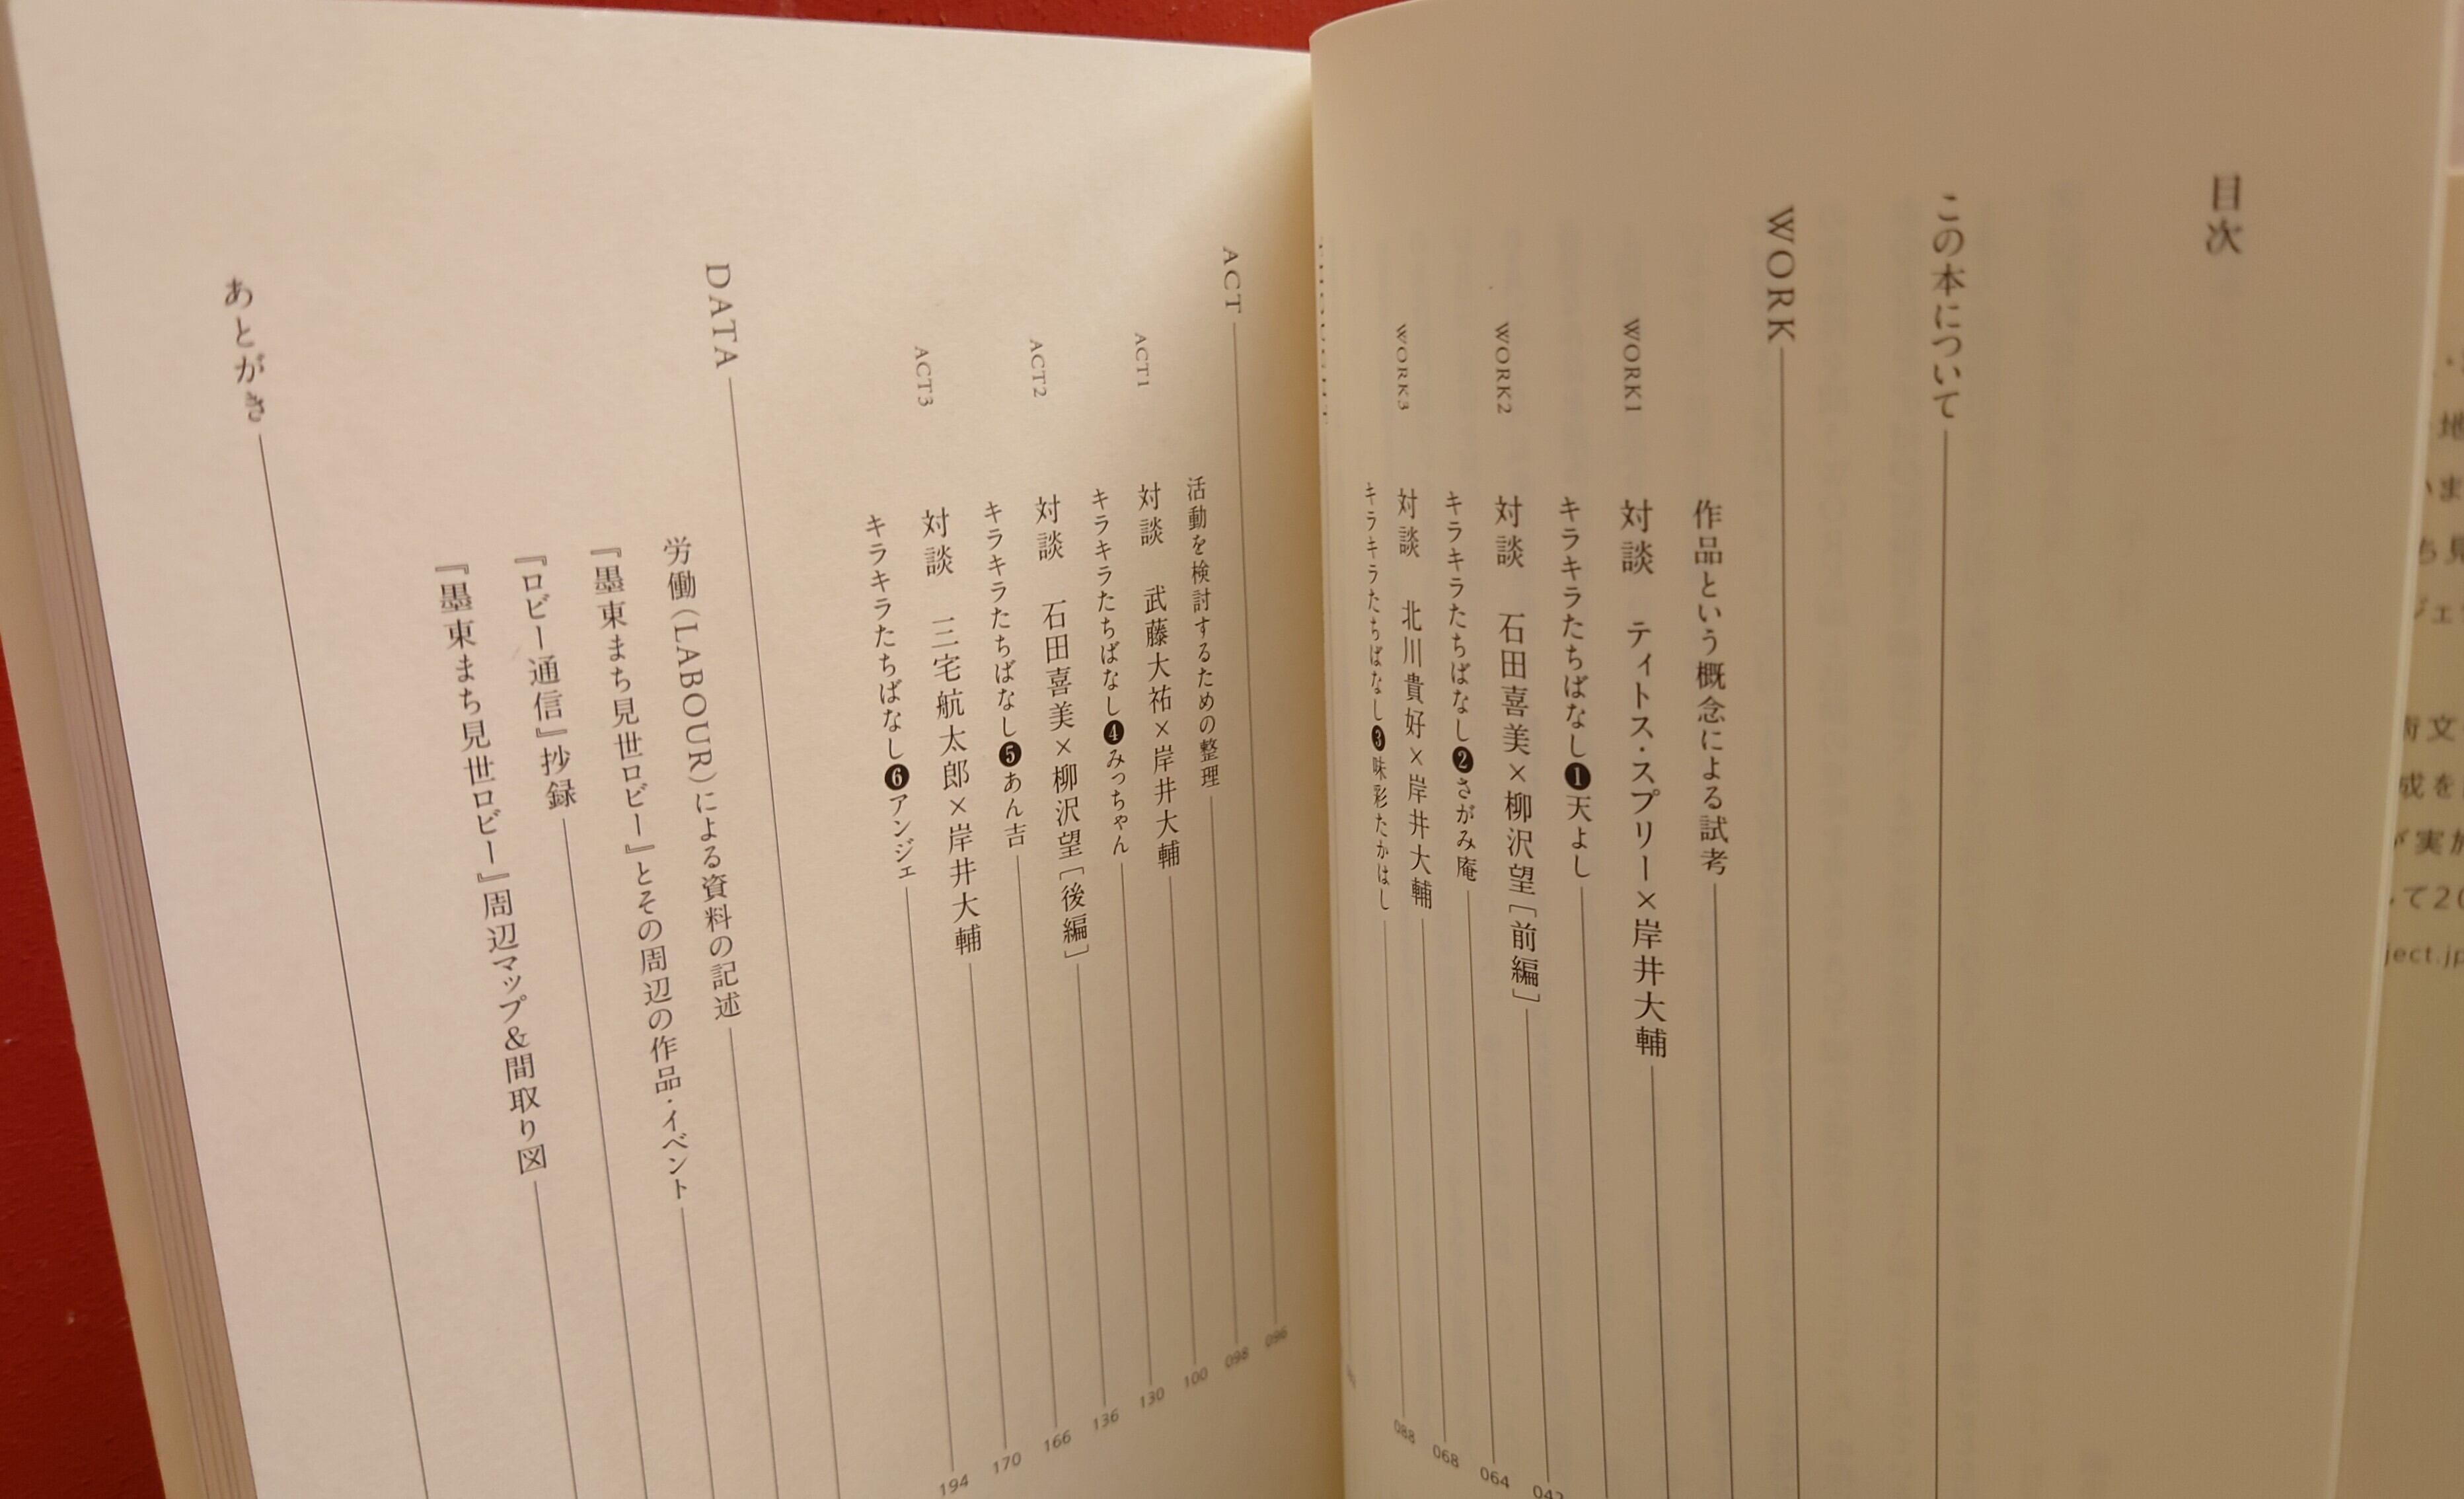 目次
この本について
WORK
作品という概念による試考
WORK1 対談 ティトス・スプリー×岸井大輔
キラキラたちばなし❶天よし
WORK2 対談 石田喜美×柳沢望［前編］
キラキラたちばなし❷さがみ庵 064
WORK3 対談 北川貴好×岸井大輔 068
キラキラたちばなし❸味彩たかはし 088
ACT 096
活動を検討するための整理 098
ACT1 対談 武藤大祐×岸井大輔 100
キラキラたちばなし❹みっちゃん 130
ACT2 対談 石田喜美×柳沢望［後編］ 136
キラキラたちばなし❺あん吉 166
ACT3 対談 三宅航太郎×岸井大輔 170
キラキラたちばなし❻アンジェ 194
DATA
労働（LABOUR）による資料の記述
『墨東まち見世ロビー』とその周辺の作品・イベント
『ロビー通信』抄録
『墨東まち見世ロビー』周辺マップ＆間取り図
あとがき